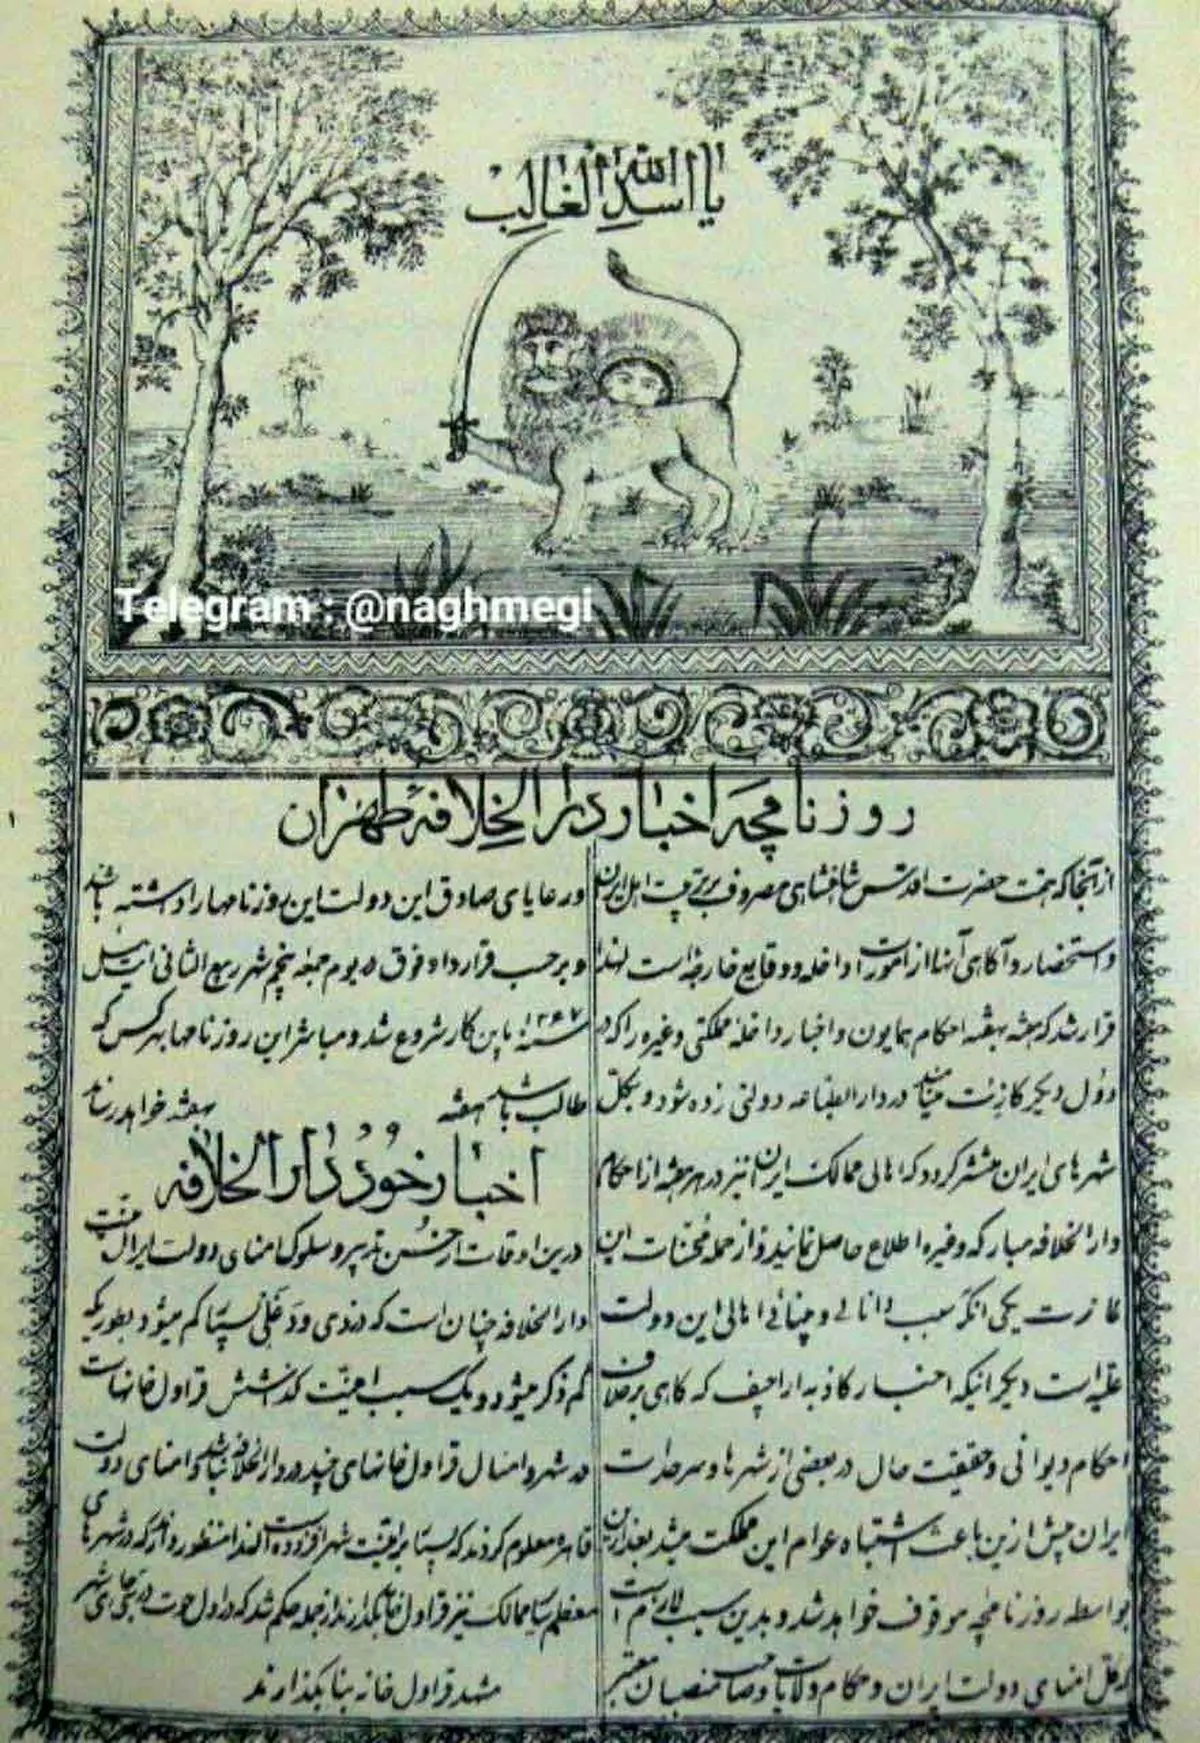 یا اسد الله الغالب
Telegram : @naghmegi
روزنامچه اخبار دار الخلافه طهران
از آنجا که همت حضرت اقدس شاهنشاهی مصروف بر تربیت اهل ایران
و استحضار و آگاهی آنها از امورات داخله و وقایع خارجه است لهذا
قرار شد که هفته بهفته احکام همایون و اخبار داخله مملکتی و غیره را که در
دول دیگر گازت مینامند در دار الطباعه دولتی زده شود و بکل
شهرهای ایران منتشر گردد که اهالی ممالک ایران نیز در هر هفته از احکام
دار الخلافه مبارکه و غیره اطلاع حاصل نمایند و از جمله محسنات این
گازت یکی آنکه سبب دانائی و بینائی اهالی این دولت
علیه است دیگر اینکه اخبار کاذبه اراجیف که گاهی برخلاف
احکام دیوانی و حقیقت حال در بعضی از شهرها و سرحدات
ایران پیش ازین باعث اشتباه عوام این مملکت میشد بعد ازین
بواسطه روزنامچه موقوف خواهد شد و بدین سبب لازم است
که کل امنای دولت ایران و حکام ولایات و صاحب منصبان معتبر
و رعایای صادق این دولت این روزنامها را داشته باشند
و بر حسب قرارداد فوق در یوم جمعه پنجم شهر ربیع الثانی
سنه ۱۲۶۷ باین کار شروع شد و مباشر این روزنامها بهر کس که
طالب باشد هفته بهفته خواهد رساند
اخبار خود دار الخلافه
درین اوقات از حسن تدبیر و سلوک امنای دولت ایران امنیت
دار الخلافه چنان است که دزدی و دغلی نسبتا کم میشود بطوریکه
کم ذکر میشود و یک سبب امنیت گذشتن قراول خانهاست
در شهر و امسال قراول خانهای چند در دار الخلافه بنا شد و امنای دولت
قاهره معلوم کردند که نسبتا بر امنیت شهر افزوده است لهذا منظور دارند که در شهرهای
معظم سایر ممالک نیز قراول خانه بگذارند از جمله حکم شد که در اول حوت در چند جای شهر
مشهد قراول خانه بنا بگذارند
۱